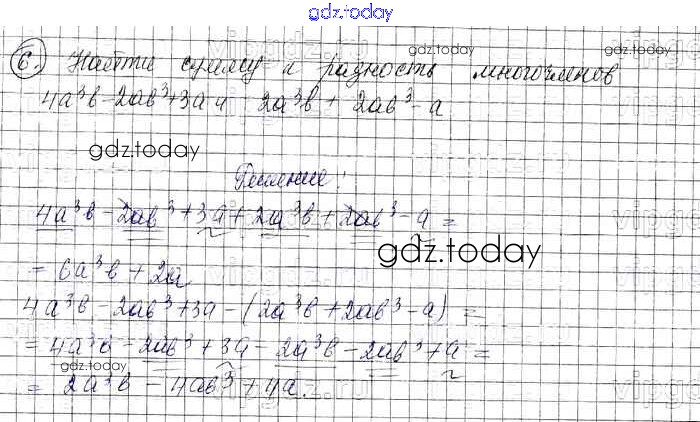 gdz.today
6. Найти сумму и разность многочленов
gdz.today
4a³b-2ab³+3a и 2a³b + 2ab³-a
gdz.today
Решение:
4a³b-2ab³+3a+2a³b+2ab³-a=
gdz.today
=6a³b+2a
4a³b-2ab³+3a-(2a³b+2ab³-a)=
=4a³b-2ab³+3a-2a³b-2ab³+a=
gdz.today
gdz.today
=2a³b-4ab³+4a.